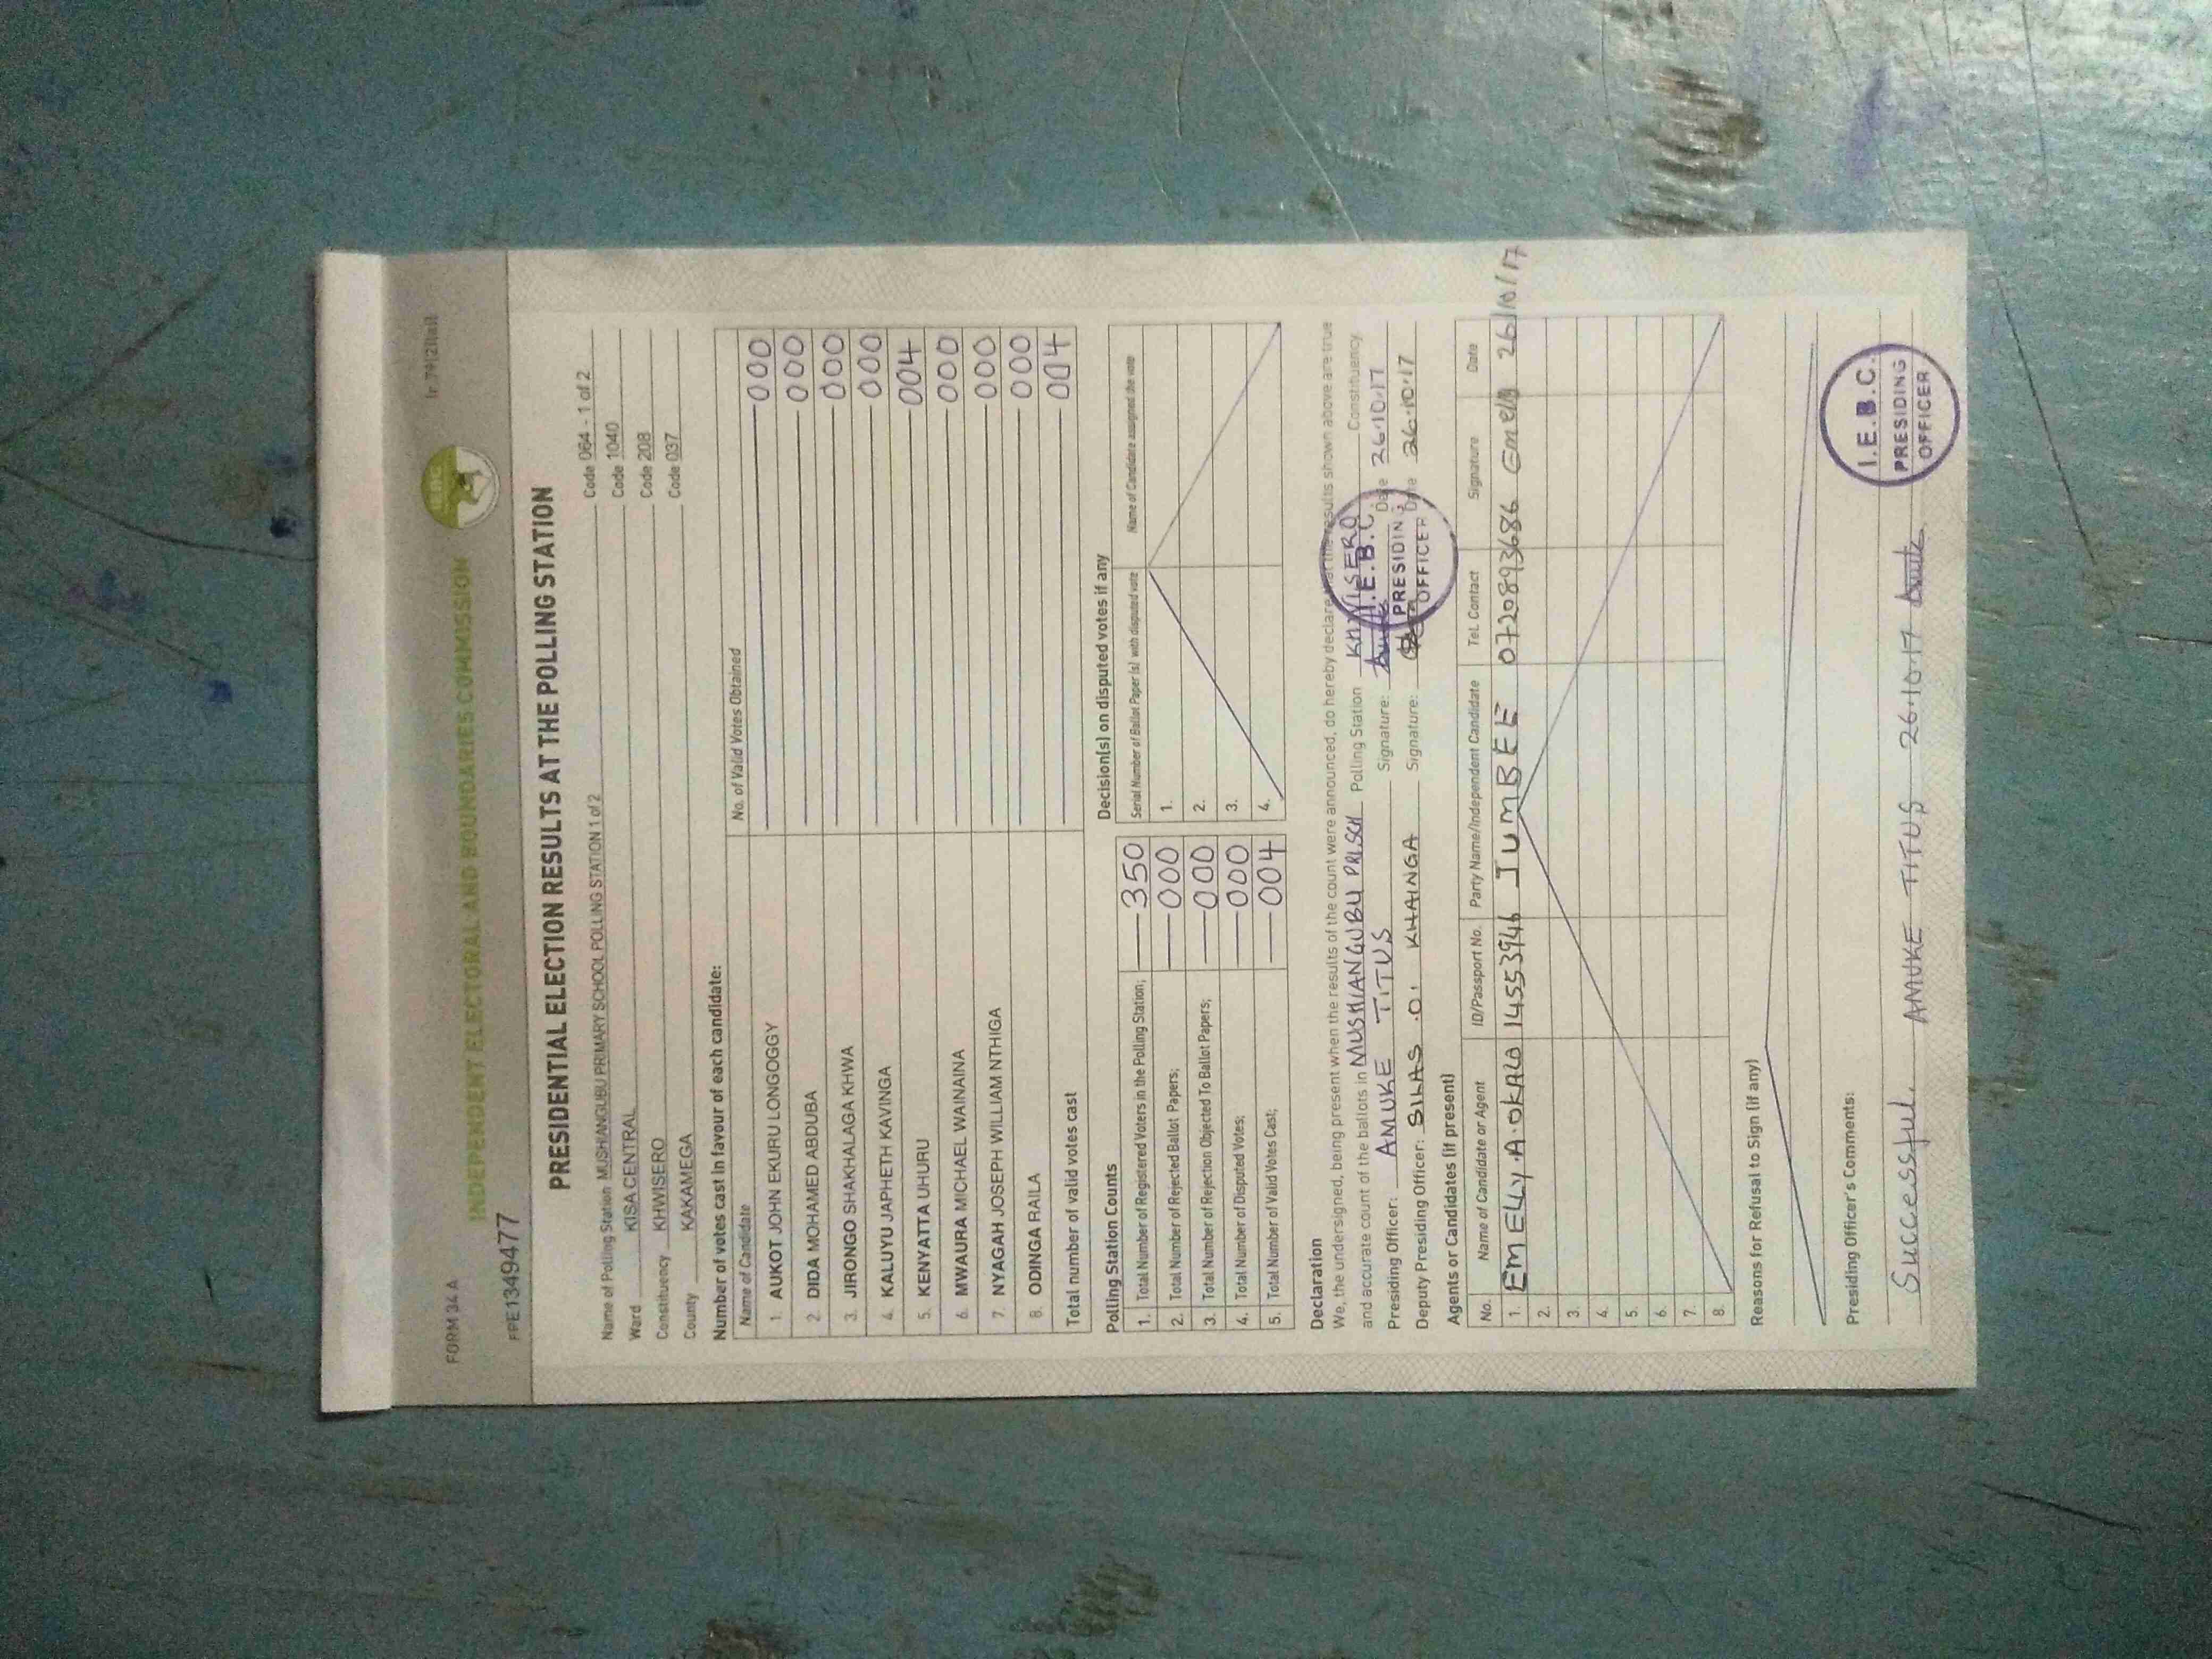 FORM 34 A
INDEPENDENT ELECTORAL AND BOUNDARIES COMMISSION
(r. 79(2)(a))
FPE1349477
PRESIDENTIAL ELECTION RESULTS AT THE POLLING STATION
Name of Polling Station MUSHIANGUBU PRIMARY SCHOOL POLLING STATION 1 of 2 Code 064 - 1 of 2
Ward KISA CENTRAL Code 1040
Constituency KHWISERO Code 208
County KAKAMEGA Code 037
Number of votes cast in favour of each candidate:
Name of Candidate No. of Valid Votes Obtained
1. AUKOT JOHN EKURU LONGOGGY 000
2. DIDA MOHAMED ABDUBA 000
3. JIRONGO SHAKHALAGA KHWA 000
4. KALUYU JAPHETH KAVINGA 000
5. KENYATTA UHURU 004
6. MWAURA MICHAEL WAINAINA 000
7. NYAGAH JOSEPH WILLIAM NTHIGA 000
8. ODINGA RAILA 000
Total number of valid votes cast 004
Polling Station Counts
1. Total Number of Registered Voters in the Polling Station; 350
2. Total Number of Rejected Ballot Papers; 000
3. Total Number of Rejection Objected To Ballot Papers; 000
4. Total Number of Disputed Votes; 000
5. Total Number of Valid Votes Cast; 004
Decision(s) on disputed votes if any
Serial Number of Ballot Paper (s) with disputed vote Name of Candidate assigned the vote
1.
2.
3.
4.
Declaration
We, the undersigned, being present when the results of the count were announced, do hereby declare that the results shown above are true
and accurate count of the ballots in MUSHIANGUBU PRI SCH Polling Station KHWISERO Constituency
Presiding Officer: AMUKE TITUS Signature: Date 26.10.17
Deputy Presiding Officer: SILAS .O. KHAINGA Signature: Date 26.10.17
I.E.B.C.
PRESIDING
OFFICER
Agents or Candidates (if present)
No. Name of Candidate or Agent ID/Passport No. Party Name/Independent Candidate Tel. Contact Signature Date
1. EMELLY.A.OKALO 14553946 JUMBEE 0720893686 Emelly 26/10/17
2.
3.
4.
5.
6.
7.
8.
Reasons for Refusal to Sign (if any)
Presiding Officer's Comments:
Successful. AMUKE TITUS 26.10.17
I.E.B.C.
PRESIDING
OFFICER